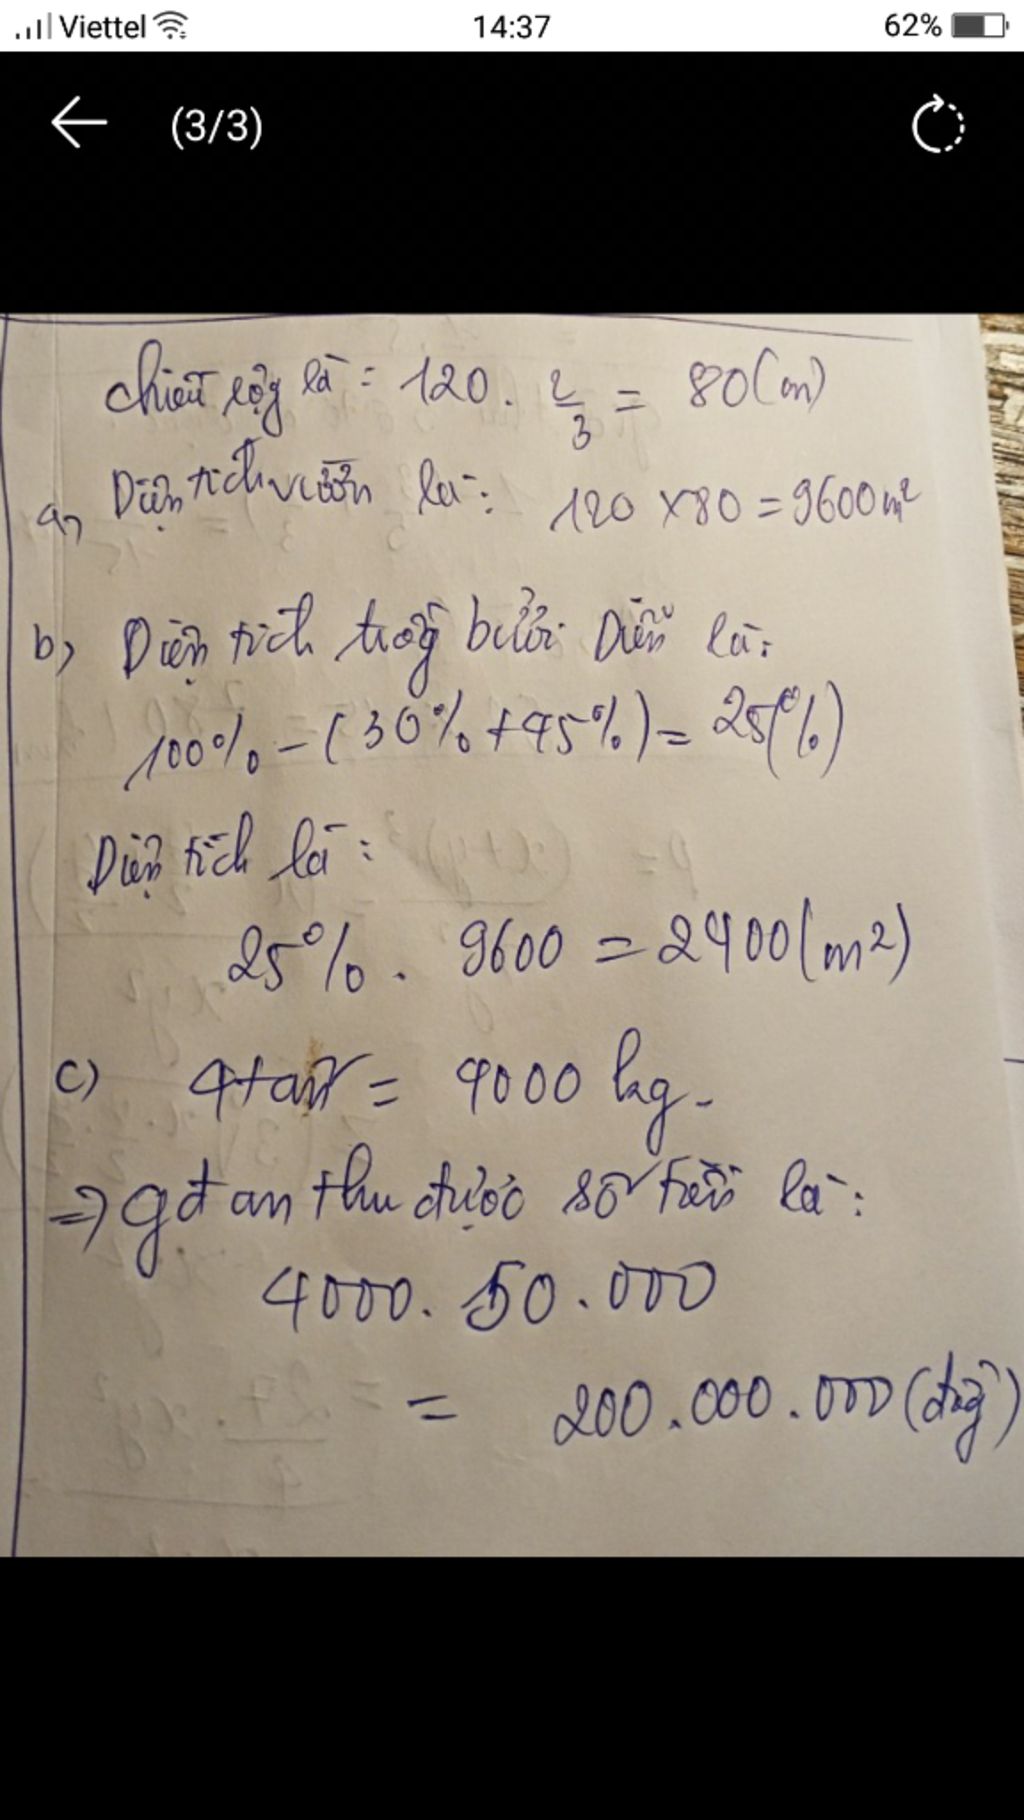 Viettel 14:37 62%
(3/3)
chiều rộng là: 120. 2/3 = 80(m)
a, Diện tích vườn là: 120 x 80 = 9600 m²
b, Diện tích trồng bưởi Diễn là:
100% - (30% + 45%) = 25(%)
Diện tích là:
25%. 9600 = 2400(m²)
c) 4 tấn = 4000 kg.
=> gđ an thu được số tiền là:
4000. 50.000
= 200.000.000 (đồng)